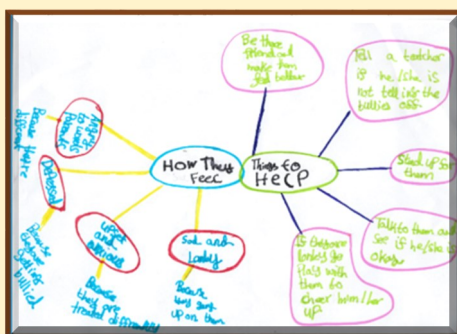 How They
Feel
Things to
Help
Be there
friend and
make them
feel better
Tell a teatcher
if he/she is
not telling the
bullies off.
Stand up for
them
Talk to them and
see if he/she is
okay.
If they are
lonley go
play with
them to
cheer him/her
up
Sad and
Because
upon them
upset and
Because
they are
treated differently
Because
getting
bullied
Because
different